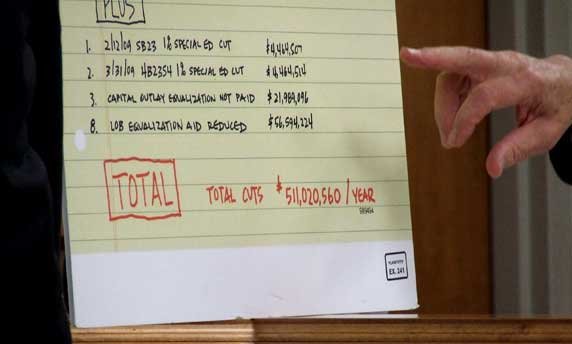 PLUS
1. 2/12/09 SB23 1% SPECIAL ED CUT $4,464,507
2. 3/31/09 HB2354 1% SPECIAL ED CUT $4,464,514
3. CAPITAL OUTLAY EQUALIZATION NOT PAID $21,989,096
8. LOB EQUALIZATION AID REDUCED $56,594,224
TOTAL TOTAL CUTS $511,020,560 / YEAR
EX. 241